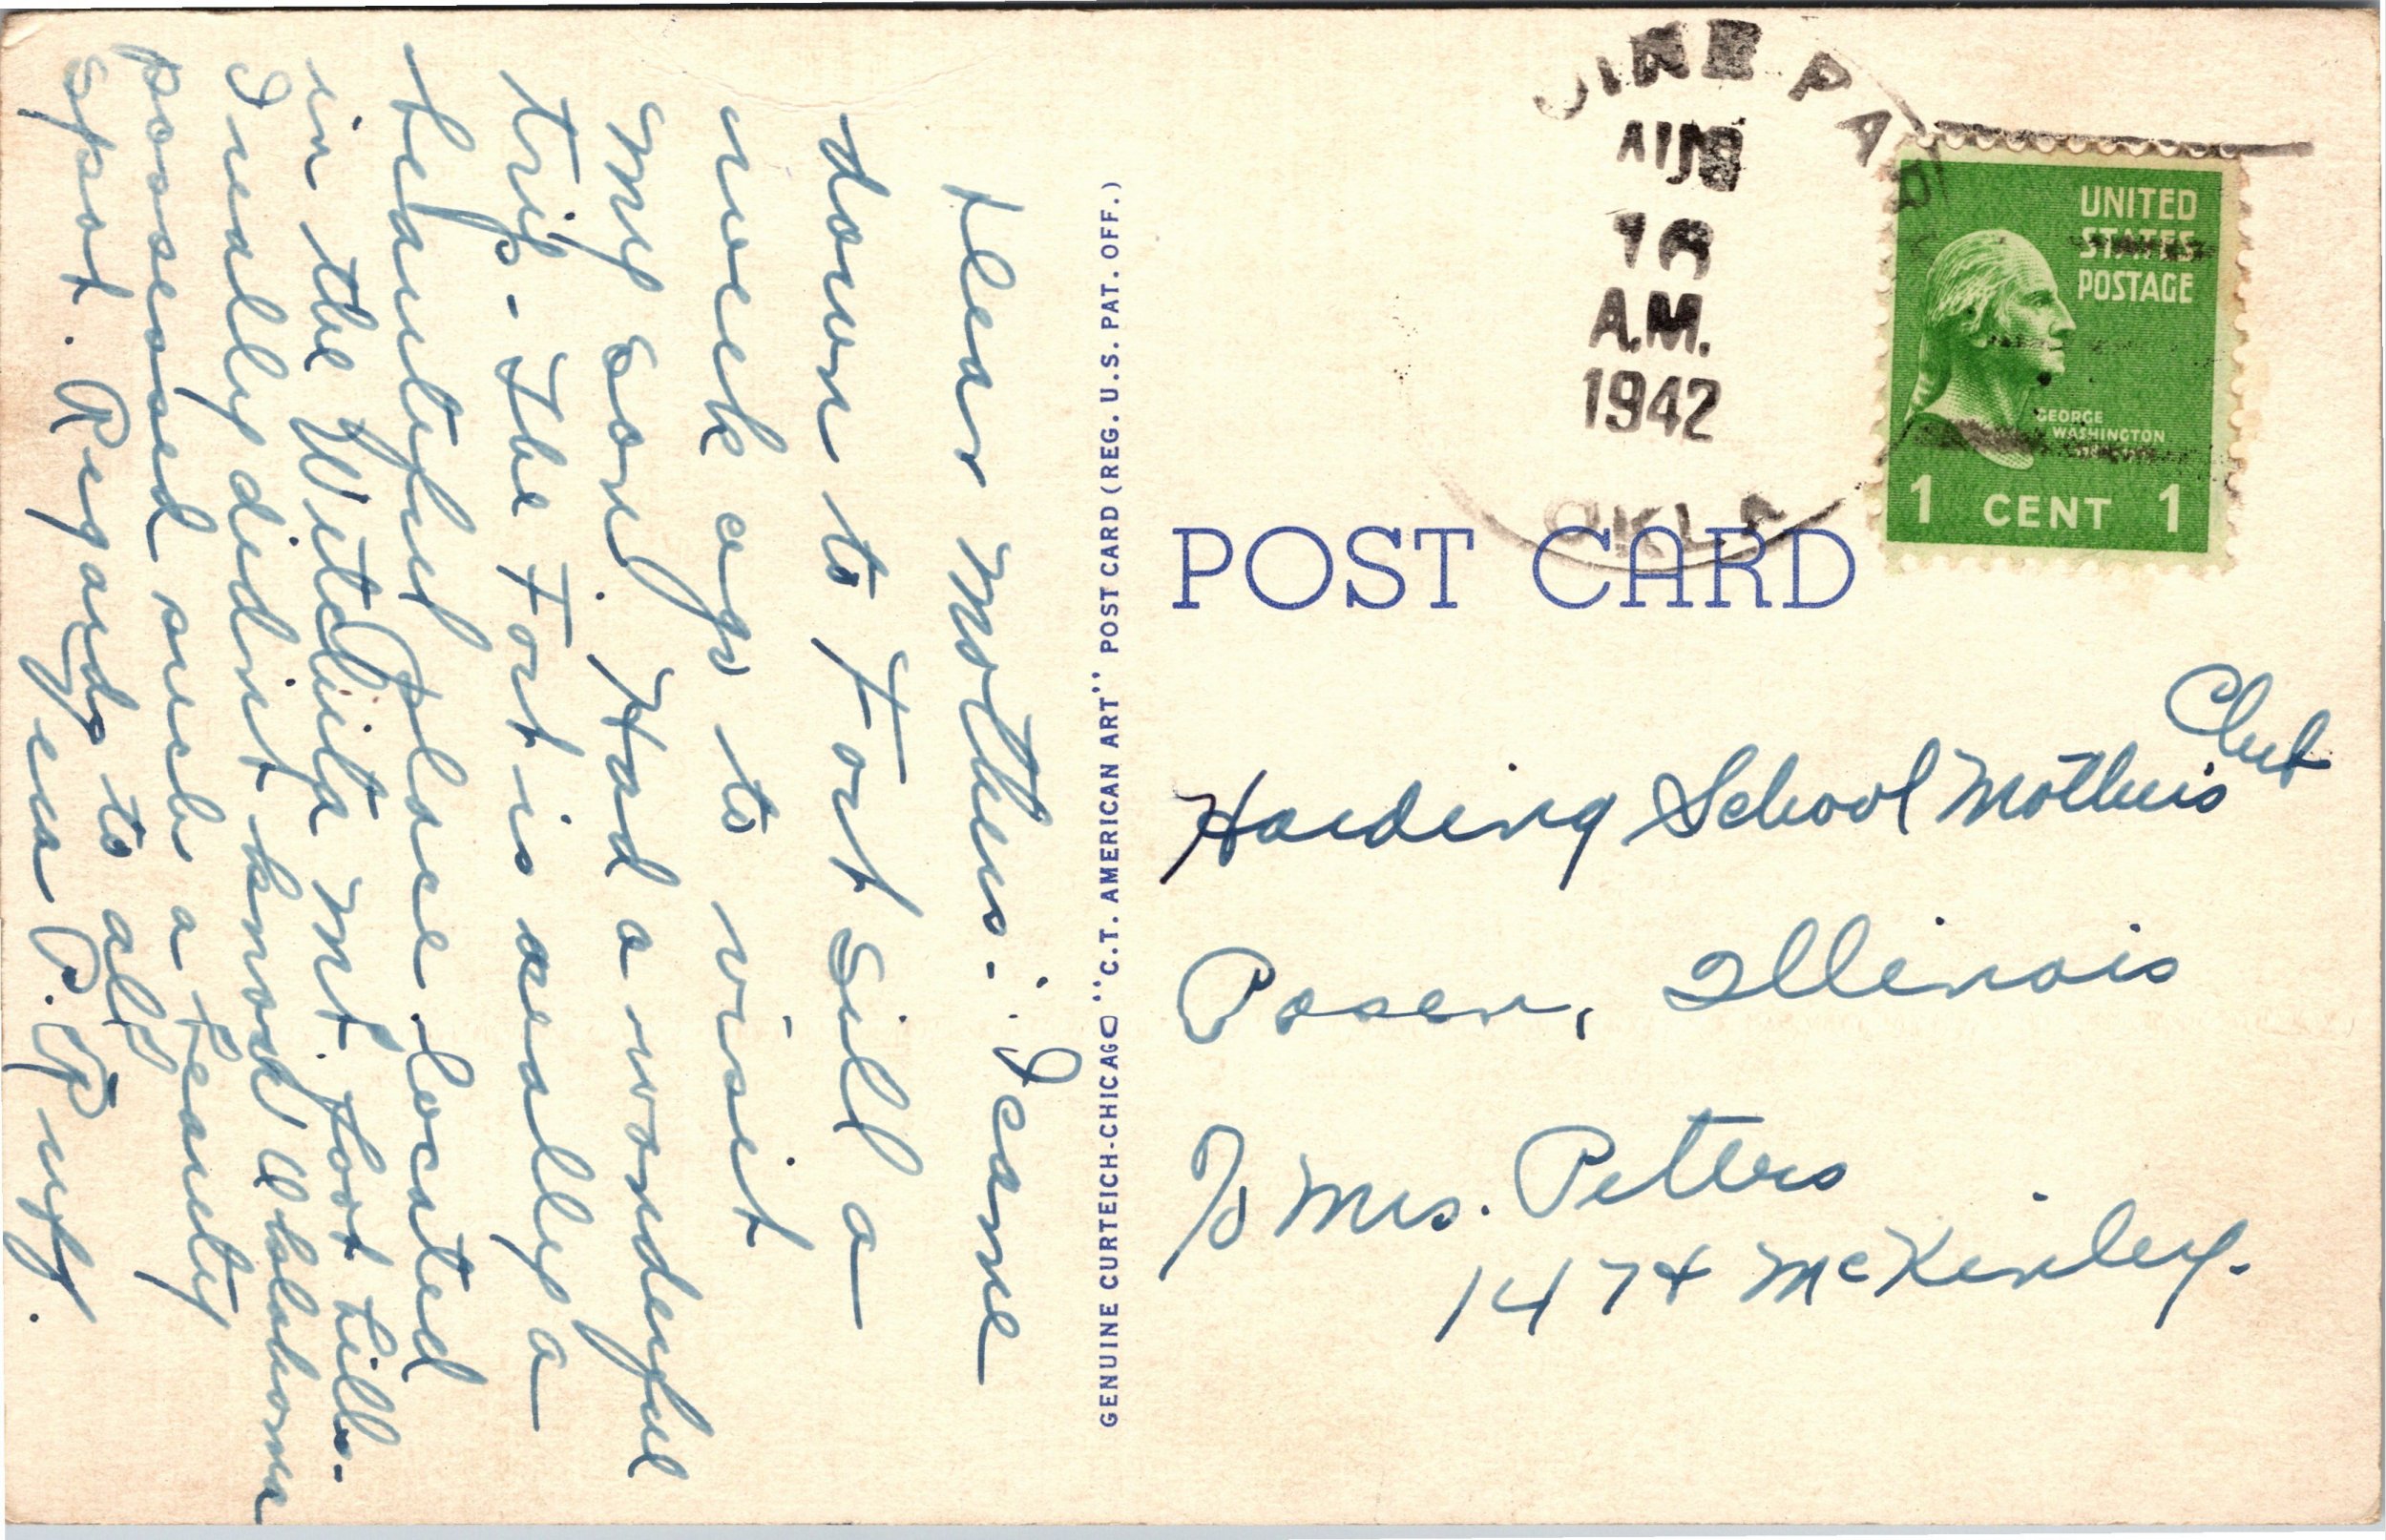 Dear Mothers: - I came
down to Fort Sill a
week ago to visit
my son. Had a wonderful
trip - The Fort is really a
beautiful place located
in the Witchita Mt. foot hills -
I really didn't know Oklahoma
possessed such a beauty
spot. Regards to all
GENUINE CURTEICH-CHICAGO "C.T. AMERICAN ART" POST CARD (REG. U.S. PAT. OFF.)
AUG
A.M.
1942
OKLA
UNITED
STATES
POSTAGE
GEORGE
WASHINGTON
1 CENT 1
POST CARD
Club
Harding School Mothers
Posen, Illinois
% Mrs. Peters
1474 McKinley.